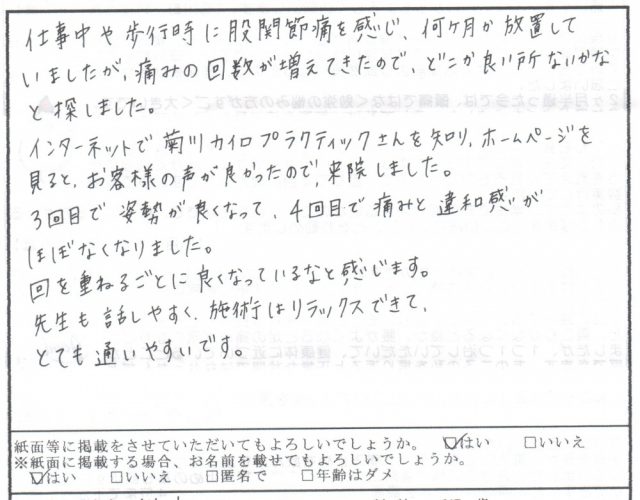 仕事中や歩行時に股関節痛を感じ、何ヶ月か放置して
いましたが、痛みの回数が増えてきたので、どこか良い所ないかな
と探しました。
インターネットで菊川カイロプラクティックさんを知り、ホームページを
見ると、お客様の声が良かったので、来院しました。
3回目で姿勢が良くなって、4回目で痛みと違和感が
ほぼなくなりました。
回を重ねるごとに良くなっているなと感じます。
先生も話しやすく、施術はリラックスできて、
とても通いやすいです。
紙面等に掲載をさせていただいてもよろしいでしょうか。 ☑はい □いいえ
※紙面に掲載する場合、お名前を載せてもよろしいでしょうか。
☑はい □いいえ □匿名で □年齢はダメ